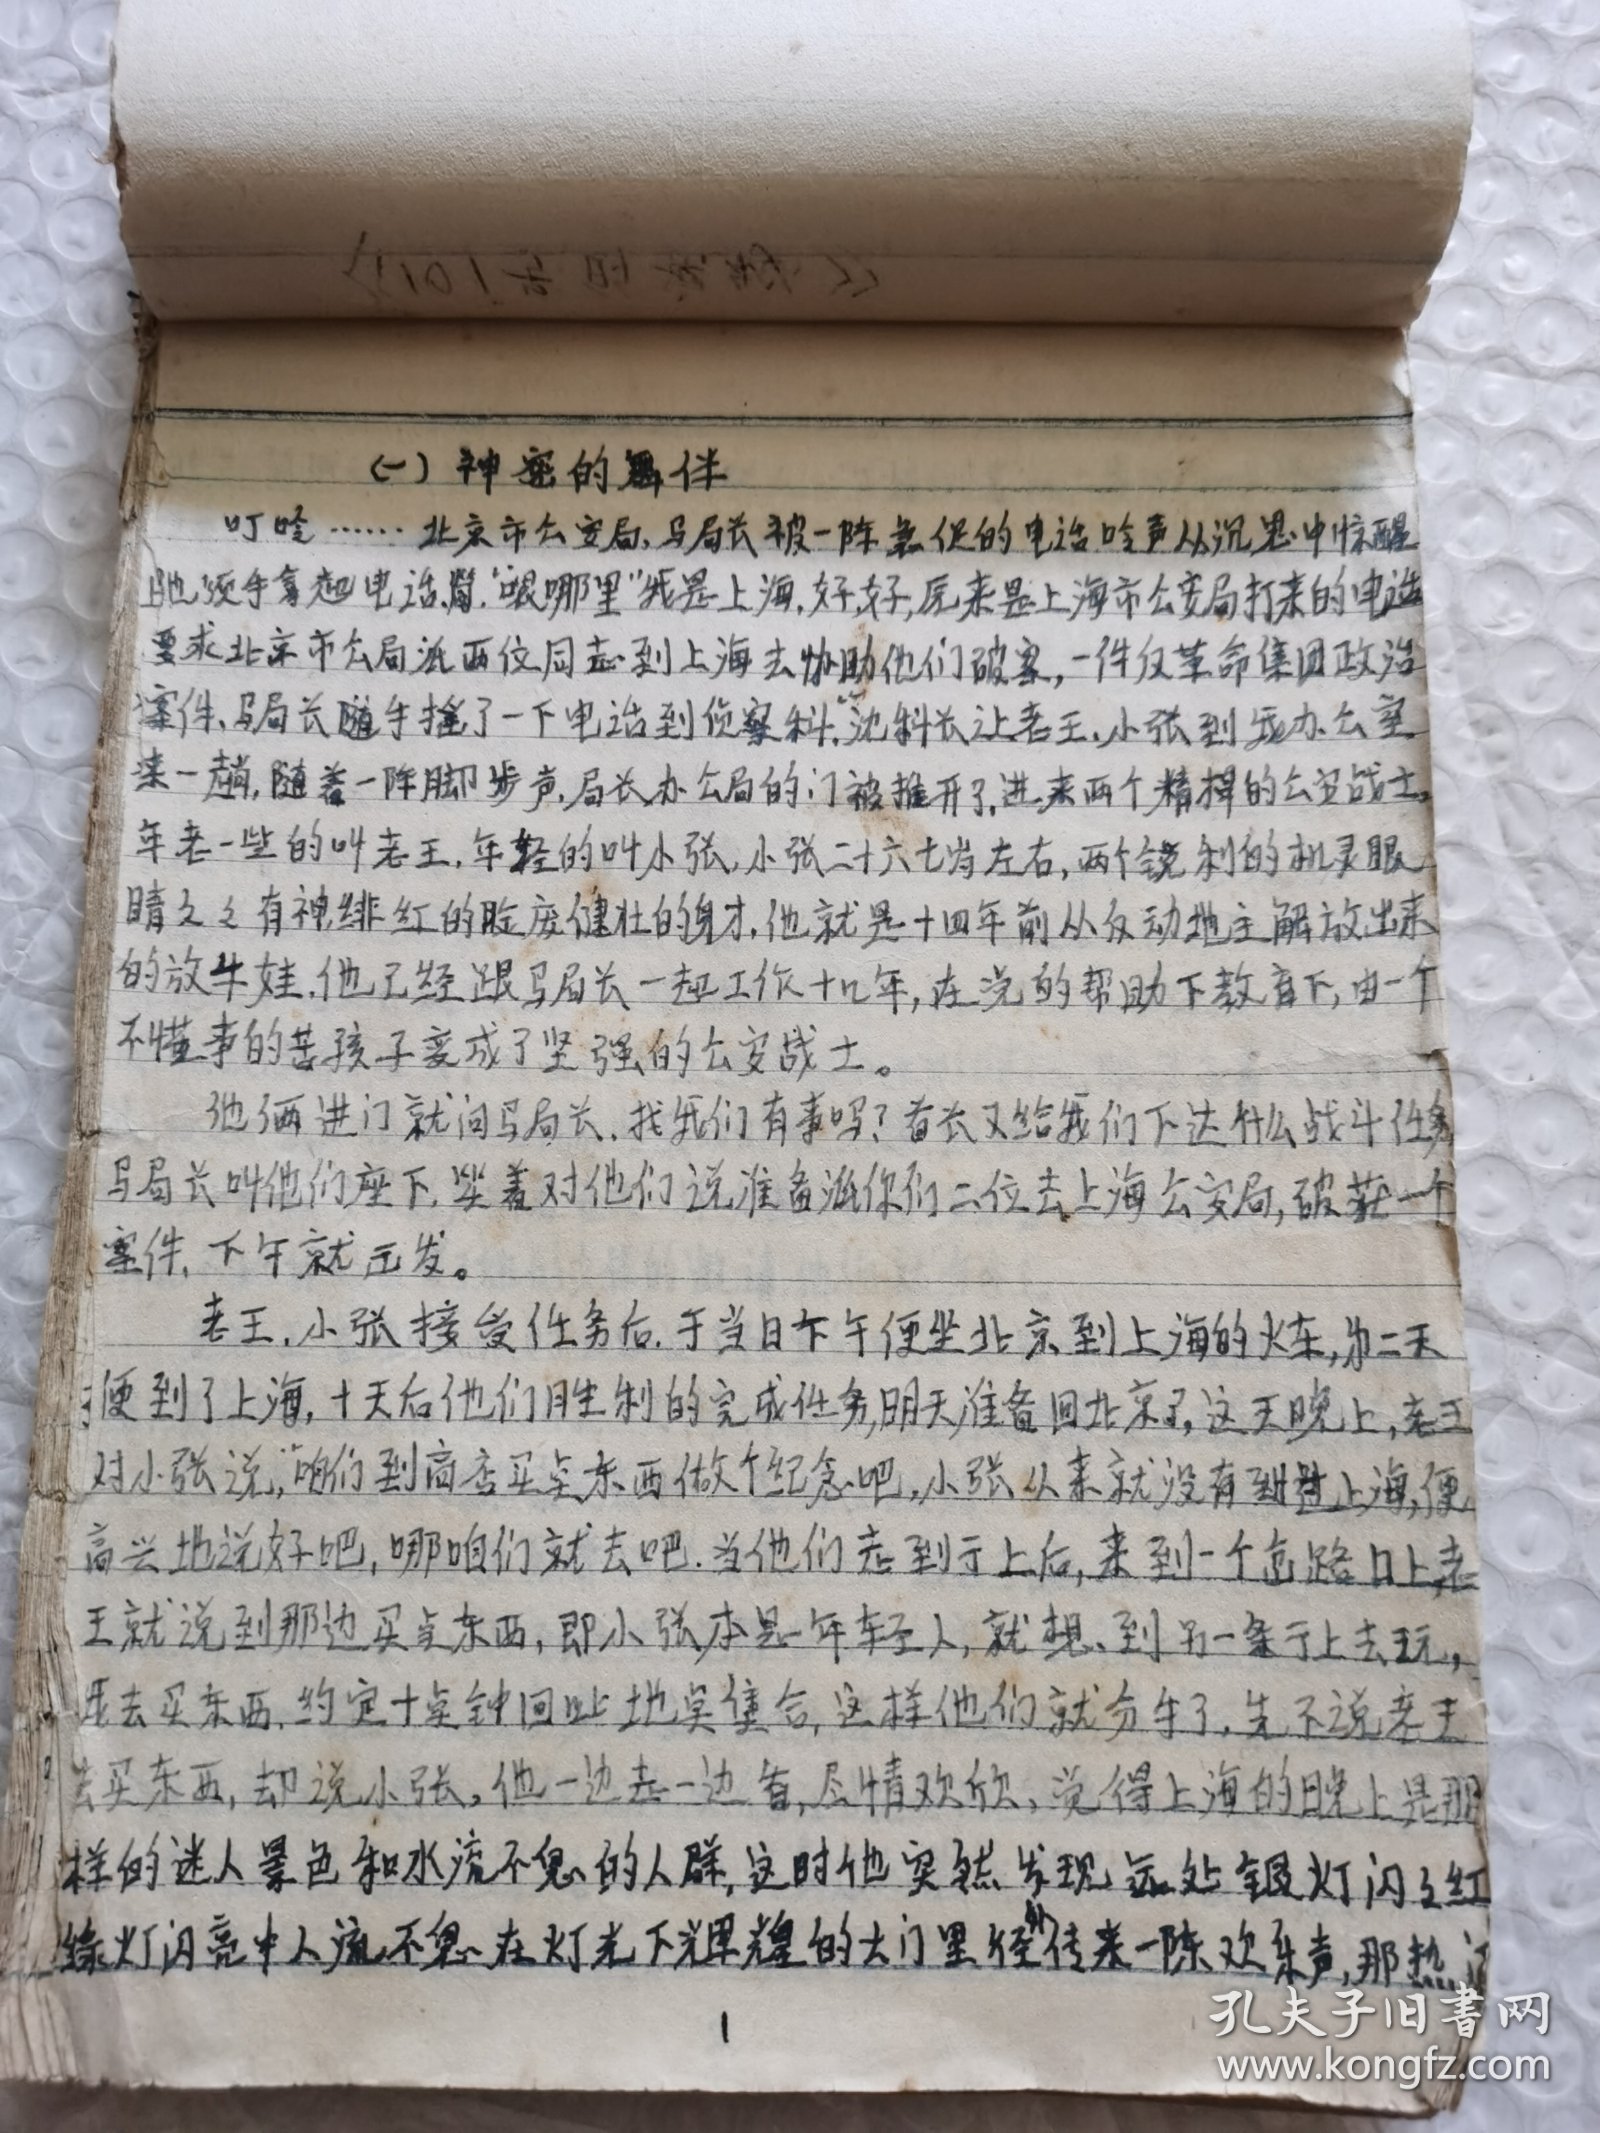 (一)神密的舞伴
叮呤……北京市公安局,马局长被一阵急促的电话呤声从沉思中惊醒
他顺手拿起电话,"喂哪里"我是上海,好,好,原来是上海市公安局打来的电话
要求北京市公局派两位同志到上海去协助他们破案,一件反革命集团政治
案件,马局长随手摇了一下电话到侦察科,沈科长让老王、小张到我办公室
来一趟,随着一阵脚步声,局长办公局的门被推开了,进来两个精捍的公安战士,
年老一些的叫老王,年轻的叫小张,小张二十六七岁左右,两个锐利的机灵眼
睛久久有神,绯红的脸庞健壮的身才,他就是十四年前从反动地主解放出来
的放牛娃,他已经跟马局长一起工作十几年,在党的帮助下教育下,由一个
不懂事的苦孩子变成了坚强的公安战士。
他俩进门就问马局长,找我们有事吗?首长又给我们下达什么战斗任务
马局长叫他们座下,笑着对他们说准备派你们二位去上海公安局,破获一个
案件,下午就出发。
老王,小张接受任务后,于当日下午便坐北京到上海的火车,第二天
便到了上海,十天后他们胜利的完成任务,明天准备回北京了,这天晚上,老王
对小张说,"咱们到商店买点东西做个纪念吧,小张从来就没有到过上海,便
高兴地说好吧,哪咱们就去吧.当他们走到亍上后,来到一个岔路口上老
王就说到那边买点东西,即小张本是年轻人,就想到另一条亍上去玩,
去买东西,约定十点钟回此地点集合,这样他们就分手了,先不说老王
去买东西,却说小张,他一边走一边看,尽情欢欣,觉得上海的晚上是那
样的迷人景色和水流不息的人群,这时他突然发现远处银灯闪闪红
绿灯闪亮中人流不息在灯光下辉煌的大门里外传来一阵欢乐声,那热
1
孔夫子旧书网
www.kongfz.com